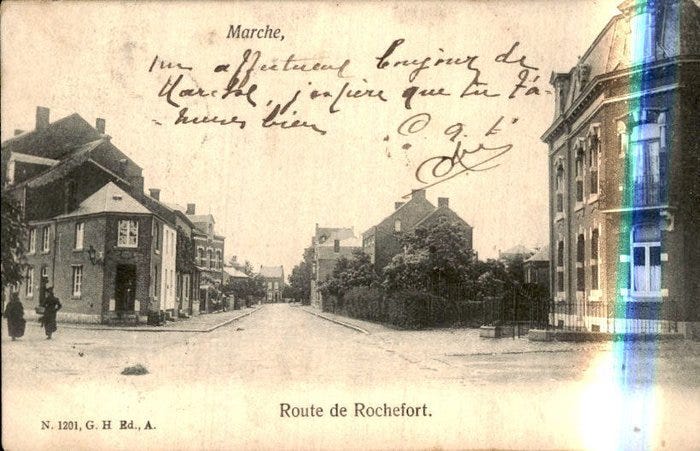 Marche,
un affectueux bonjour de
Marche, j'espère que tu t'a-
muses bien
Route de Rochefort.
N. 1201, G. H Ed., A.